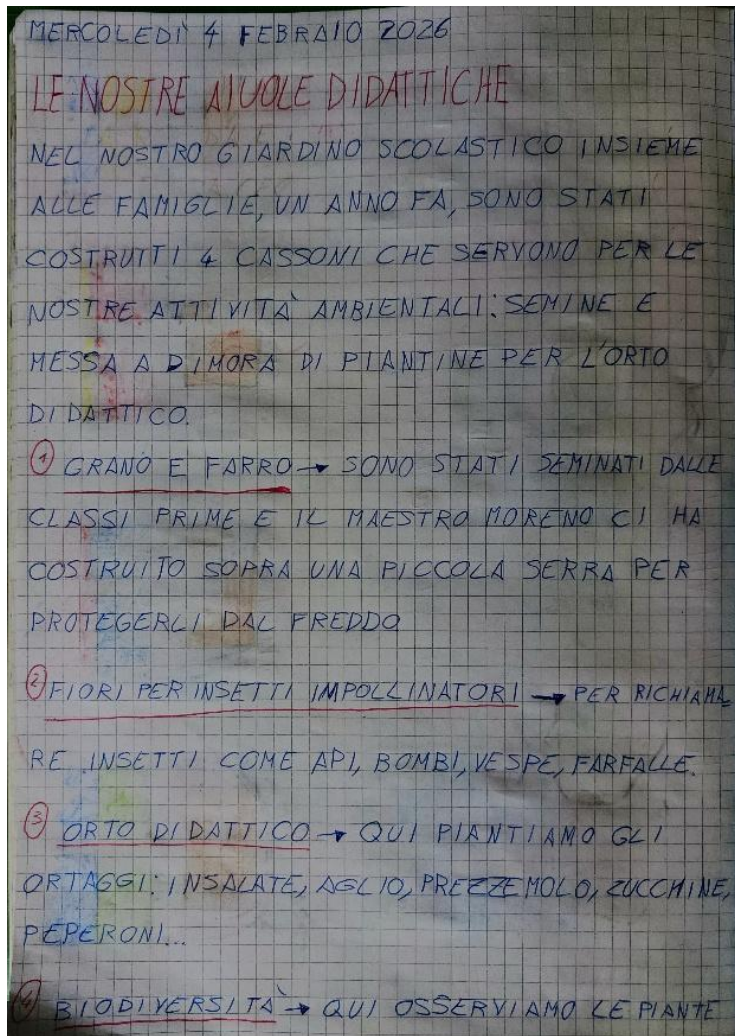 MERCOLEDÌ 4 FEBRAIO 2026
LE NOSTRE AIUOLE DIDATTICHE
NEL NOSTRO GIARDINO SCOLASTICO INSIEME
ALLE FAMIGLIE, UN ANNO FA, SONO STATI
COSTRUITI 4 CASSONI CHE SERVONO PER LE
NOSTRE ATTIVITÀ AMBIENTALI: SEMINE E
MESSA A DIMORA DI PIANTINE PER L'ORTO
DIDATTICO.
① GRANO E FARRO → SONO STATI SEMINATI DALLE
CLASSI PRIME E IL MAESTRO MORENO CI HA
COSTRUITO SOPRA UNA PICCOLA SERRA PER
PROTEGERLI DAL FREDDO
② FIORI PER INSETTI IMPOLLINATORI → PER RICHIAMA=
RE INSETTI COME API, BOMBI, VESPE, FARFALLE.
③ ORTO DIDATTICO → QUI PIANTIAMO GLI
ORTAGGI: INSALATE, AGLIO, PREZZEMOLO, ZUCCHINE,
PEPERONI...
④ BIODIVERSITÀ → QUI OSSERVIAMO LE PIANTE